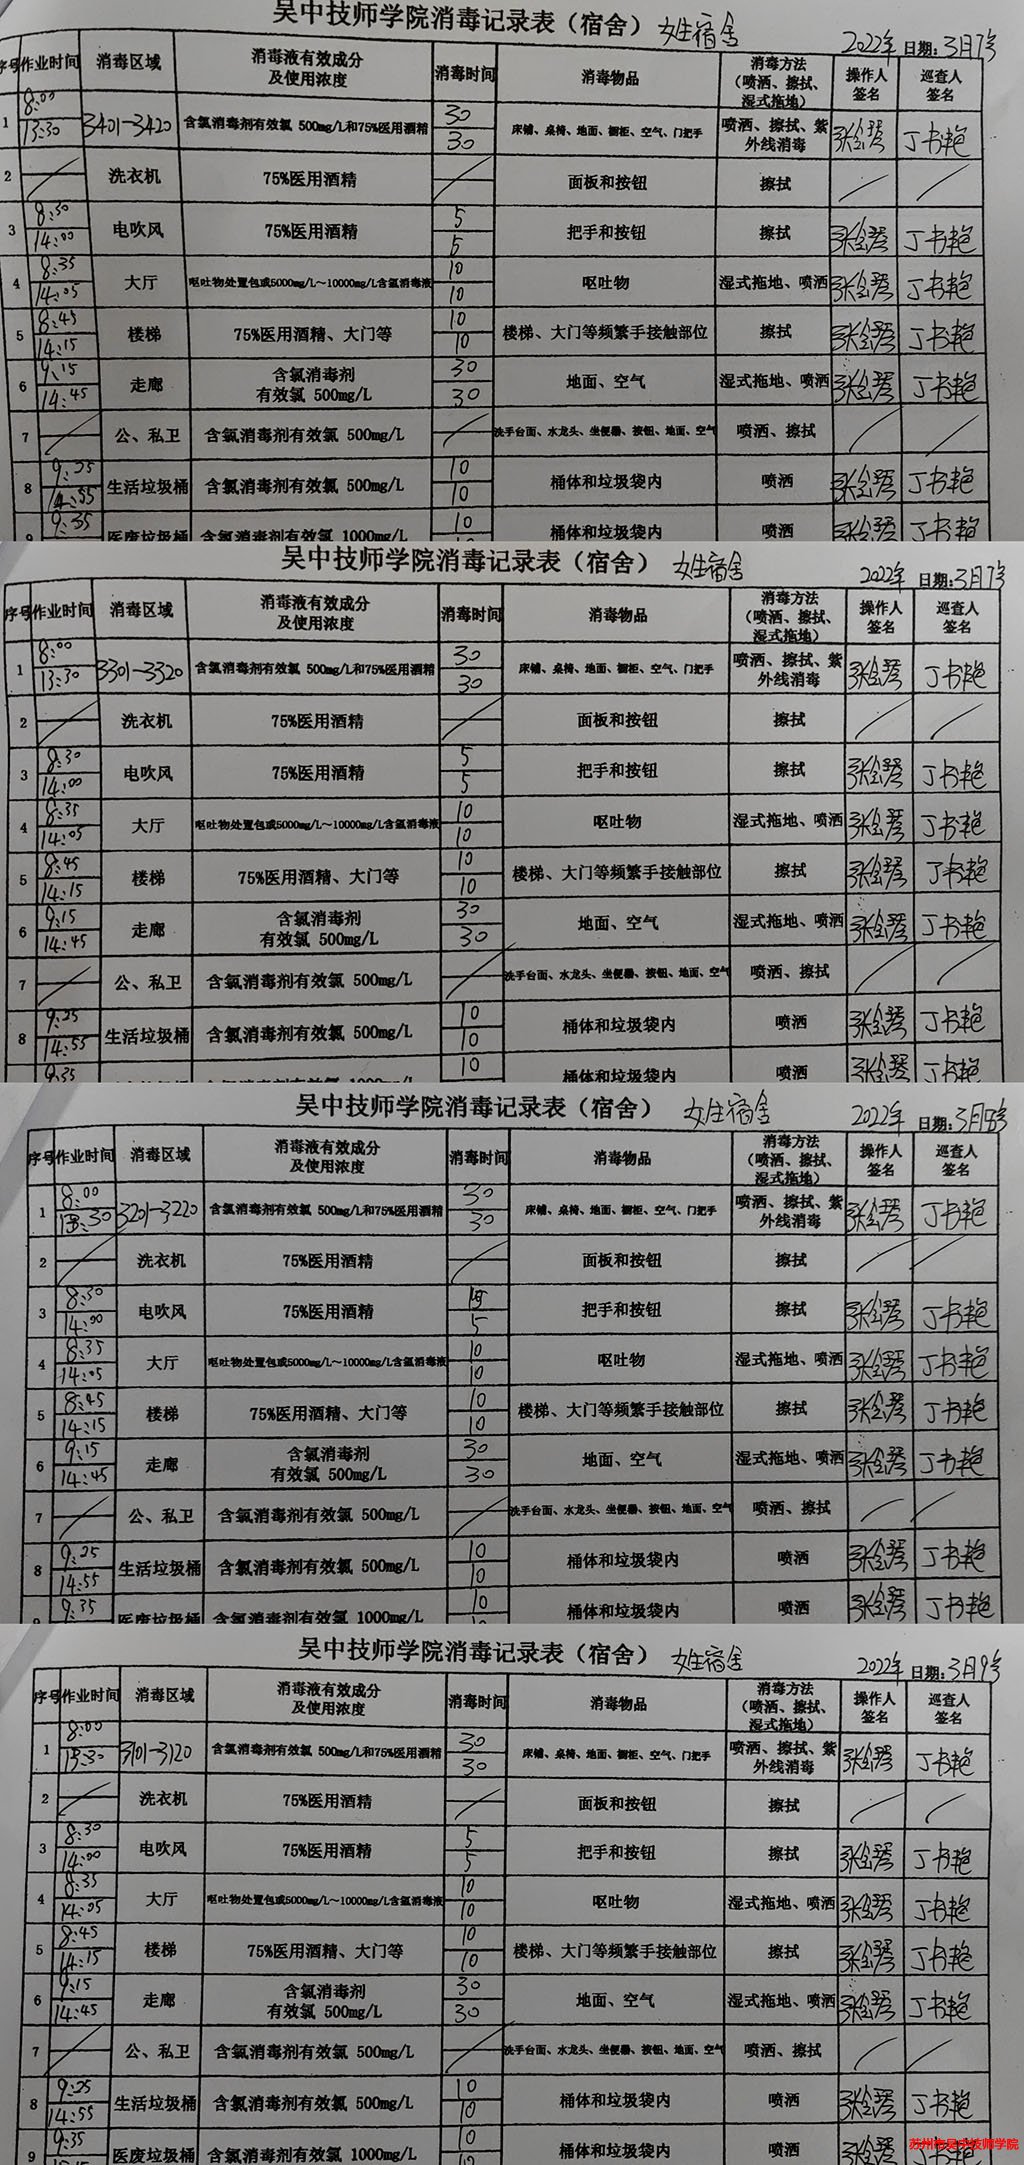 吴中技师学院消毒记录表（宿舍） 女生宿舍
2022年 日期：3月7号
序号 作业时间 消毒区域 消毒液有效成分及使用浓度 消毒时间 消毒物品 消毒方法（喷洒、擦拭、湿式拖地） 操作人签名 巡查人签名
1 8:00 13:30 3401-3420 含氯消毒剂有效氯 500mg/L和75%医用酒精 30 30 床铺、桌椅、地面、橱柜、空气、门把手 喷洒、擦拭、紫外线消毒 丁书艳
2 洗衣机 75%医用酒精 面板和按钮 擦拭
3 8:30 14:00 电吹风 75%医用酒精 5 5 把手和按钮 擦拭 丁书艳
4 8:35 14:05 大厅 呕吐物处置包或5000mg/L~10000mg/L含氯消毒液 10 10 呕吐物 湿式拖地、喷洒 丁书艳
5 8:45 14:15 楼梯 75%医用酒精、大门等 10 10 楼梯、大门等频繁手接触部位 擦拭 丁书艳
6 9:15 14:45 走廊 含氯消毒剂有效氯 500mg/L 30 30 地面、空气 湿式拖地、喷洒 丁书艳
7 公、私卫 含氯消毒剂有效氯 500mg/L 洗手台面、水龙头、坐便器、按钮、地面、空气 喷洒、擦拭
8 9:25 14:55 生活垃圾桶 含氯消毒剂有效氯 500mg/L 10 10 桶体和垃圾袋内 喷洒 丁书艳
9 9:35 医废垃圾桶 含氯消毒剂有效氯 1000mg/L 10 桶体和垃圾袋内 喷洒 丁书艳
吴中技师学院消毒记录表（宿舍） 女生宿舍
2022年 日期：3月7号
序号 作业时间 消毒区域 消毒液有效成分及使用浓度 消毒时间 消毒物品 消毒方法（喷洒、擦拭、湿式拖地） 操作人签名 巡查人签名
1 8:00 13:30 3301-3320 含氯消毒剂有效氯 500mg/L和75%医用酒精 30 30 床铺、桌椅、地面、橱柜、空气、门把手 喷洒、擦拭、紫外线消毒 丁书艳
2 洗衣机 75%医用酒精 面板和按钮 擦拭
3 8:30 14:00 电吹风 75%医用酒精 5 5 把手和按钮 擦拭 丁书艳
4 8:35 14:05 大厅 呕吐物处置包或5000mg/L~10000mg/L含氯消毒液 10 10 呕吐物 湿式拖地、喷洒 丁书艳
5 8:45 14:15 楼梯 75%医用酒精、大门等 10 10 楼梯、大门等频繁手接触部位 擦拭 丁书艳
6 9:15 14:45 走廊 含氯消毒剂有效氯 500mg/L 30 30 地面、空气 湿式拖地、喷洒 丁书艳
7 公、私卫 含氯消毒剂有效氯 500mg/L 洗手台面、水龙头、坐便器、按钮、地面、空气 喷洒、擦拭
8 9:25 14:55 生活垃圾桶 含氯消毒剂有效氯 500mg/L 10 10 桶体和垃圾袋内 喷洒 丁书艳
9:35 10 桶体和垃圾袋内 喷洒 丁书艳
吴中技师学院消毒记录表（宿舍） 女生宿舍
2022年 日期：3月8号
序号 作业时间 消毒区域 消毒液有效成分及使用浓度 消毒时间 消毒物品 消毒方法（喷洒、擦拭、湿式拖地） 操作人签名 巡查人签名
1 8:00 13:30 3201-3220 含氯消毒剂有效氯 500mg/L和75%医用酒精 30 30 床铺、桌椅、地面、橱柜、空气、门把手 喷洒、擦拭、紫外线消毒 丁书艳
2 洗衣机 75%医用酒精 面板和按钮 擦拭
3 8:30 14:00 电吹风 75%医用酒精 5 5 把手和按钮 擦拭 丁书艳
4 8:35 14:05 大厅 呕吐物处置包或5000mg/L~10000mg/L含氯消毒液 10 10 呕吐物 湿式拖地、喷洒 丁书艳
5 8:45 14:15 楼梯 75%医用酒精、大门等 10 10 楼梯、大门等频繁手接触部位 擦拭 丁书艳
6 9:15 14:45 走廊 含氯消毒剂有效氯 500mg/L 30 30 地面、空气 湿式拖地、喷洒 丁书艳
7 公、私卫 含氯消毒剂有效氯 500mg/L 洗手台面、水龙头、坐便器、按钮、地面、空气 喷洒、擦拭
8 9:25 14:55 生活垃圾桶 含氯消毒剂有效氯 500mg/L 10 10 桶体和垃圾袋内 喷洒 丁书艳
9 9:35 医废垃圾桶 含氯消毒剂有效氯 1000mg/L 10 桶体和垃圾袋内 喷洒 丁书艳
吴中技师学院消毒记录表（宿舍） 女生宿舍
2022年 日期：3月9号
序号 作业时间 消毒区域 消毒液有效成分及使用浓度 消毒时间 消毒物品 消毒方法（喷洒、擦拭、湿式拖地） 操作人签名 巡查人签名
1 8:00 13:30 3101-3120 含氯消毒剂有效氯 500mg/L和75%医用酒精 30 30 床铺、桌椅、地面、橱柜、空气、门把手 喷洒、擦拭、紫外线消毒 丁书艳
2 洗衣机 75%医用酒精 面板和按钮 擦拭
3 8:30 14:00 电吹风 75%医用酒精 5 5 把手和按钮 擦拭 丁书艳
4 8:35 14:05 大厅 呕吐物处置包或5000mg/L~10000mg/L含氯消毒液 10 10 呕吐物 湿式拖地、喷洒 丁书艳
5 8:45 14:15 楼梯 75%医用酒精、大门等 10 10 楼梯、大门等频繁手接触部位 擦拭 丁书艳
6 9:15 14:45 走廊 含氯消毒剂有效氯 500mg/L 30 30 地面、空气 湿式拖地、喷洒 丁书艳
7 公、私卫 含氯消毒剂有效氯 500mg/L 洗手台面、水龙头、坐便器、按钮、地面、空气 喷洒、擦拭
8 9:25 14:55 生活垃圾桶 含氯消毒剂有效氯 500mg/L 10 10 桶体和垃圾袋内 喷洒 丁书艳
9 9:35 医废垃圾桶 含氯消毒剂有效氯 1000mg/L 10 桶体和垃圾袋内 喷洒
苏州市吴中技师学院